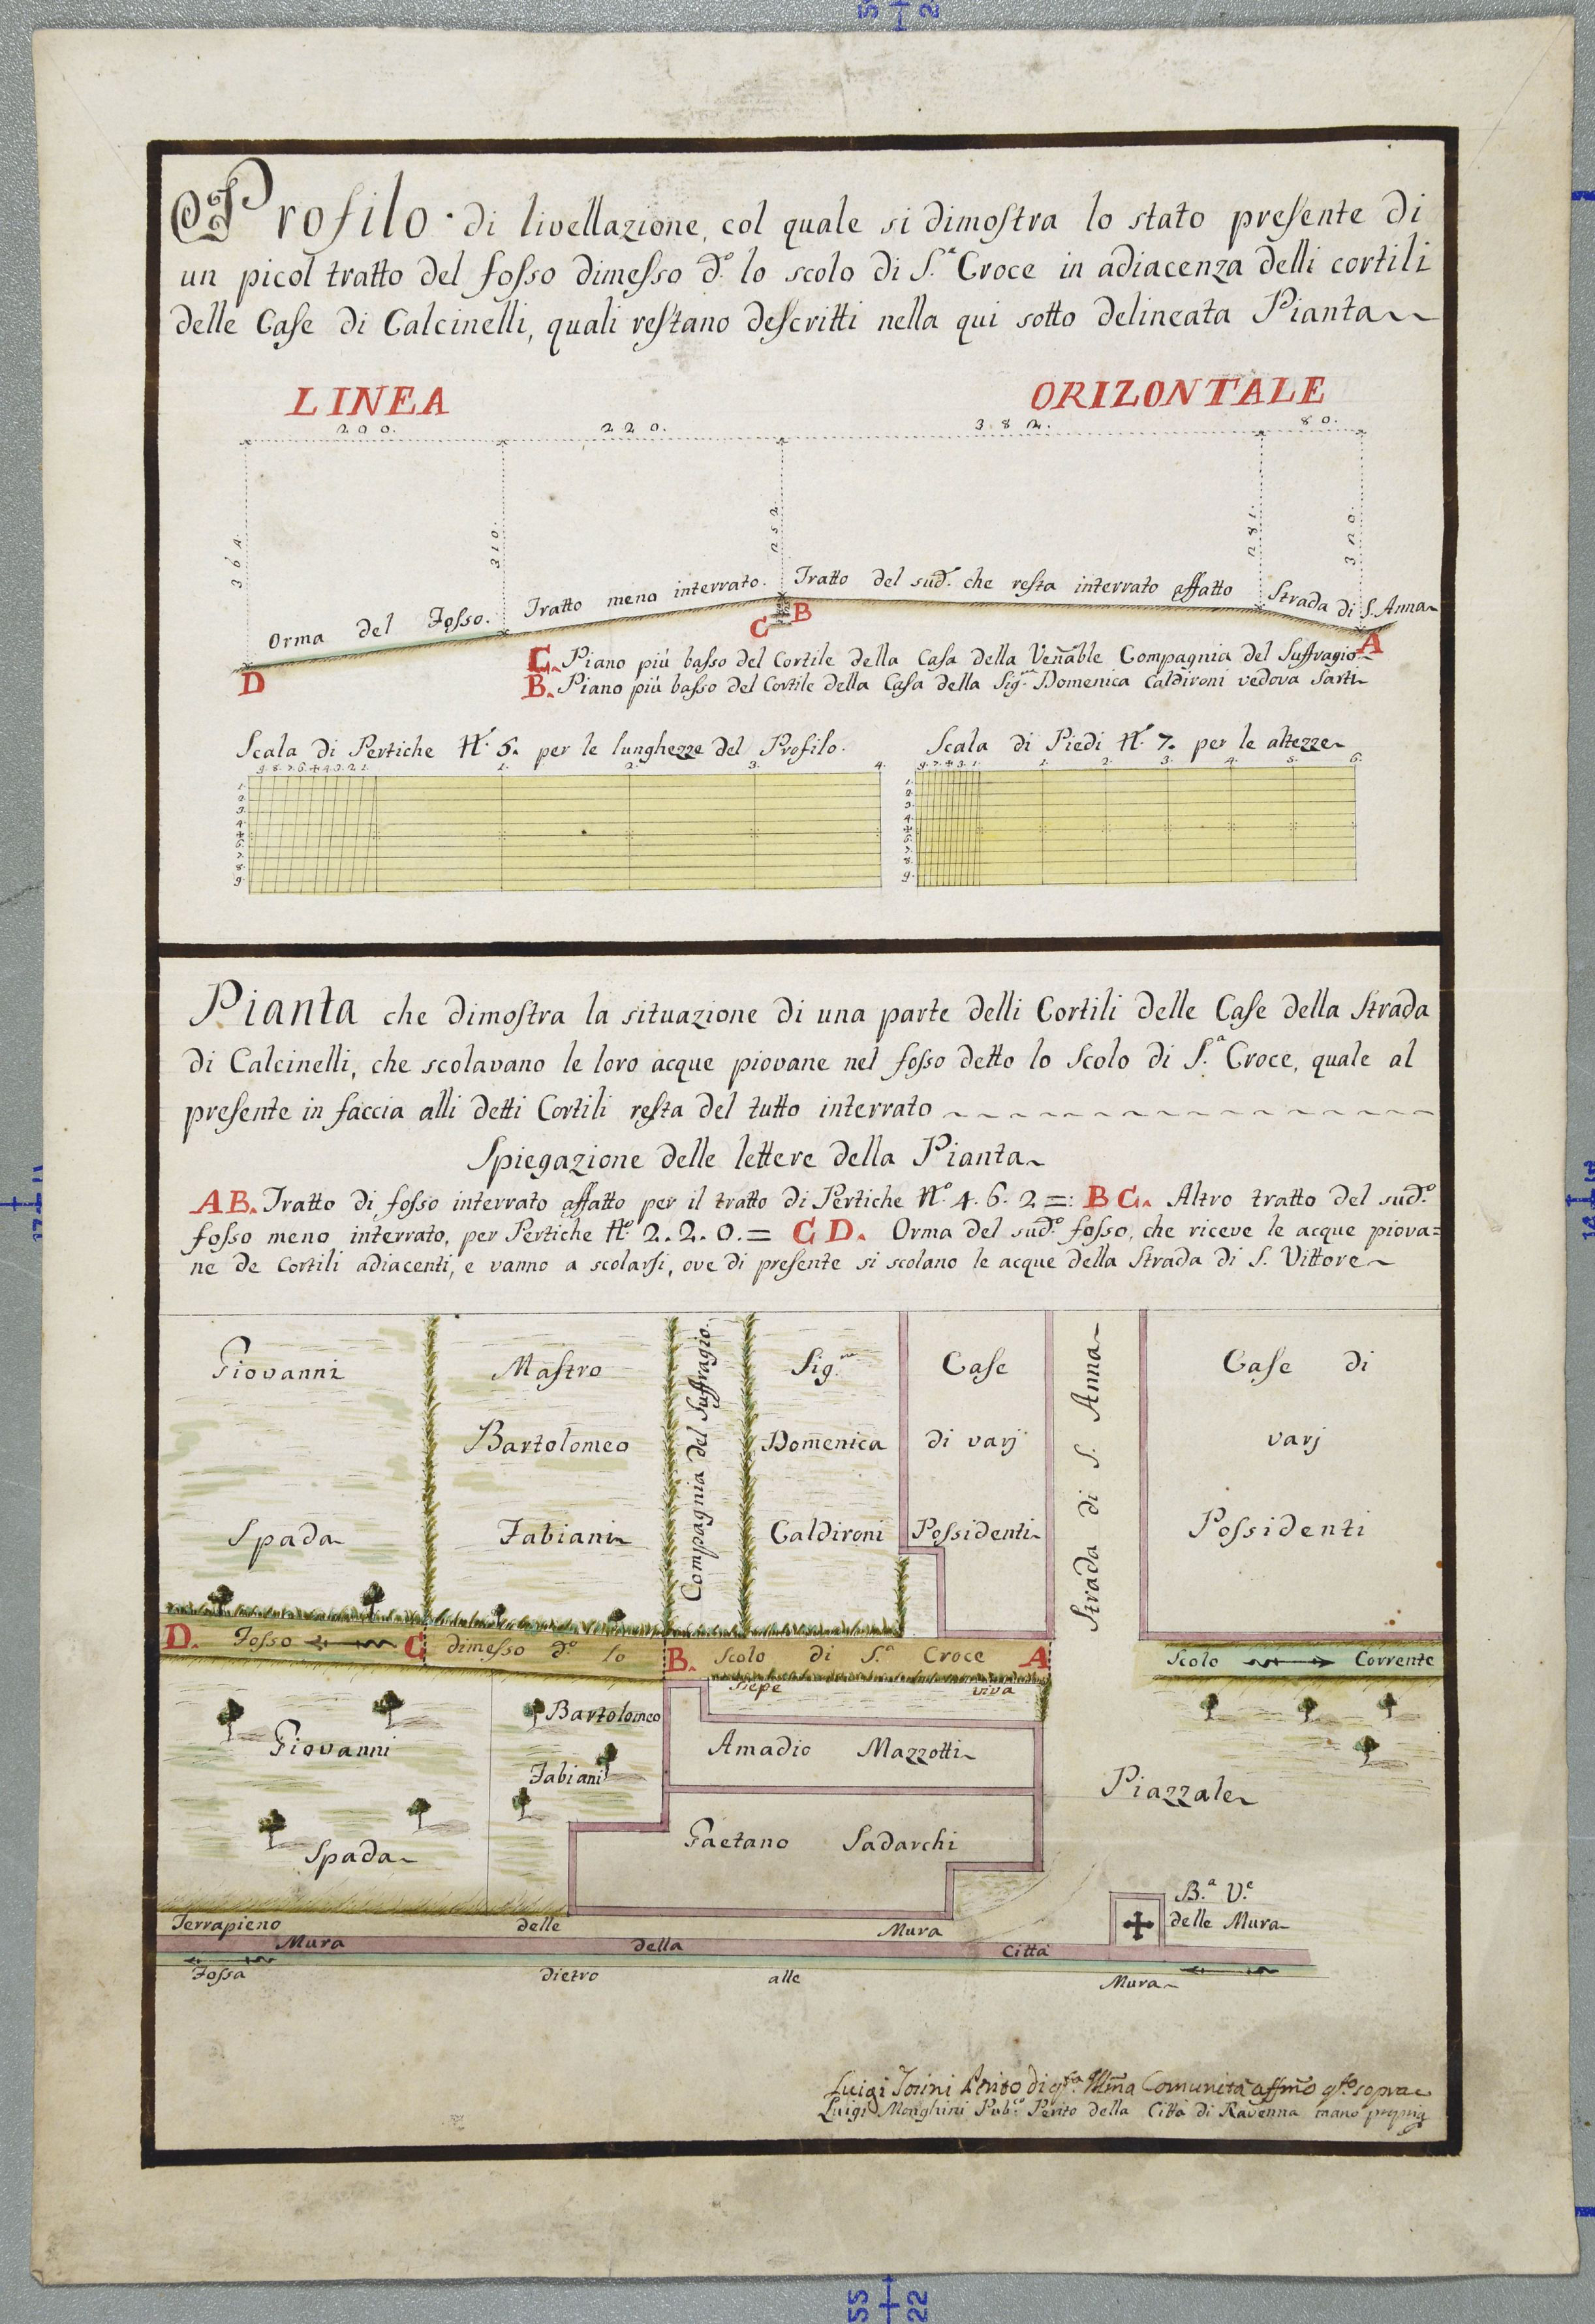 Profilo di livellazione, col quale si dimostra lo stato presente di
un picol tratto del fosso dimesso d.º lo scolo di S.ª Croce in adiacenza delli cortili
delle Case di Calcinelli, quali restano descritti nella qui sotto delineata Pianta
LINEA ORIZONTALE
200. 220. 382. 80.
364. 310. 252. 281. 320.
Orma del Fosso. Tratto meno interrato. Tratto del sud.º che resta interrato affatto Strada di S. Anna
D C B A
C. Piano più basso del Cortile della Casa della Ven̄able Compagnia del Suffragio
B. Piano più basso del Cortile della Casa della Sig.ra Domenica Caldironi vedova Sarti
Scala di Pertiche N.º 5. per le lunghezze del Profilo. Scala di Piedi N.º 7. per le altezze
1. 2. 3. 4. 1. 2. 3. 4. 5. 6.
Pianta che dimostra la situazione di una parte delli Cortili delle Case della Strada
di Calcinelli, che scolavano le loro acque piovane nel fosso detto lo Scolo di S.ª Croce, quale al
presente in faccia alli detti Cortili resta del tutto interrato
Spiegazione delle lettere della Pianta
AB. Tratto di fosso interrato affatto per il tratto di Pertiche N.º 4. 6. 2 =: BC. Altro tratto del sud.º
fosso meno interrato, per Pertiche N.º 2. 2. 0. = CD. Orma del sud.º fosso, che riceve le acque piova=
ne de Cortili adiacenti, e vanno a scolarsi, ove di presente si scolano le acque della Strada di S. Vittore
Giovanni
Spada
Mastro
Bartolomeo
Fabiani
Compagnia del Suffragio.
Sig.ra
Domenica
Caldironi
Case
di varj
Possidenti
Strada di S. Anna
Case di
varj
Possidenti
D. Fosso C dimesso d.º lo B. Scolo di S.ª Croce A
Scolo Corrente
Siepe viva
Giovanni
Spada
Bartolomeo
Fabiani
Amadio Mazzotti
Gaetano Sadarchi
Piazzale
B.ª V.e
delle Mura
Terrapieno delle Mura
Mura della Città
Fossa dietro alle Mura
Luigi Perito di Comunità
Luigi Monghini Pub.º Perito della Città di Ravenna mano propria
55 22